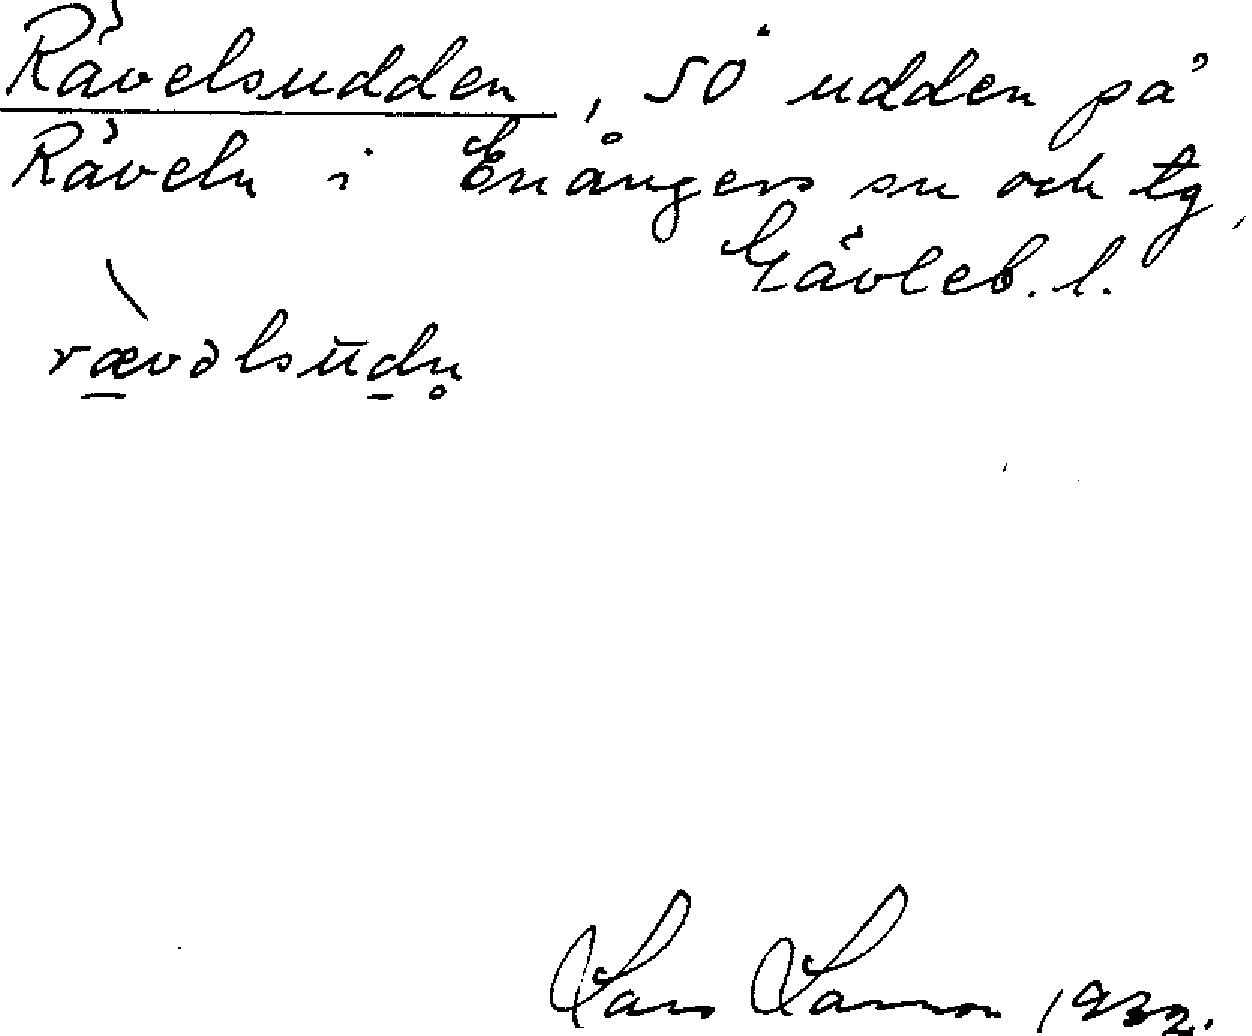 Rävelsudden, SÖ udden på
Räveln i Enångers sn och tg,
Gävleb. l.
rævəlsūdn̥
Lars Larsson 1932.